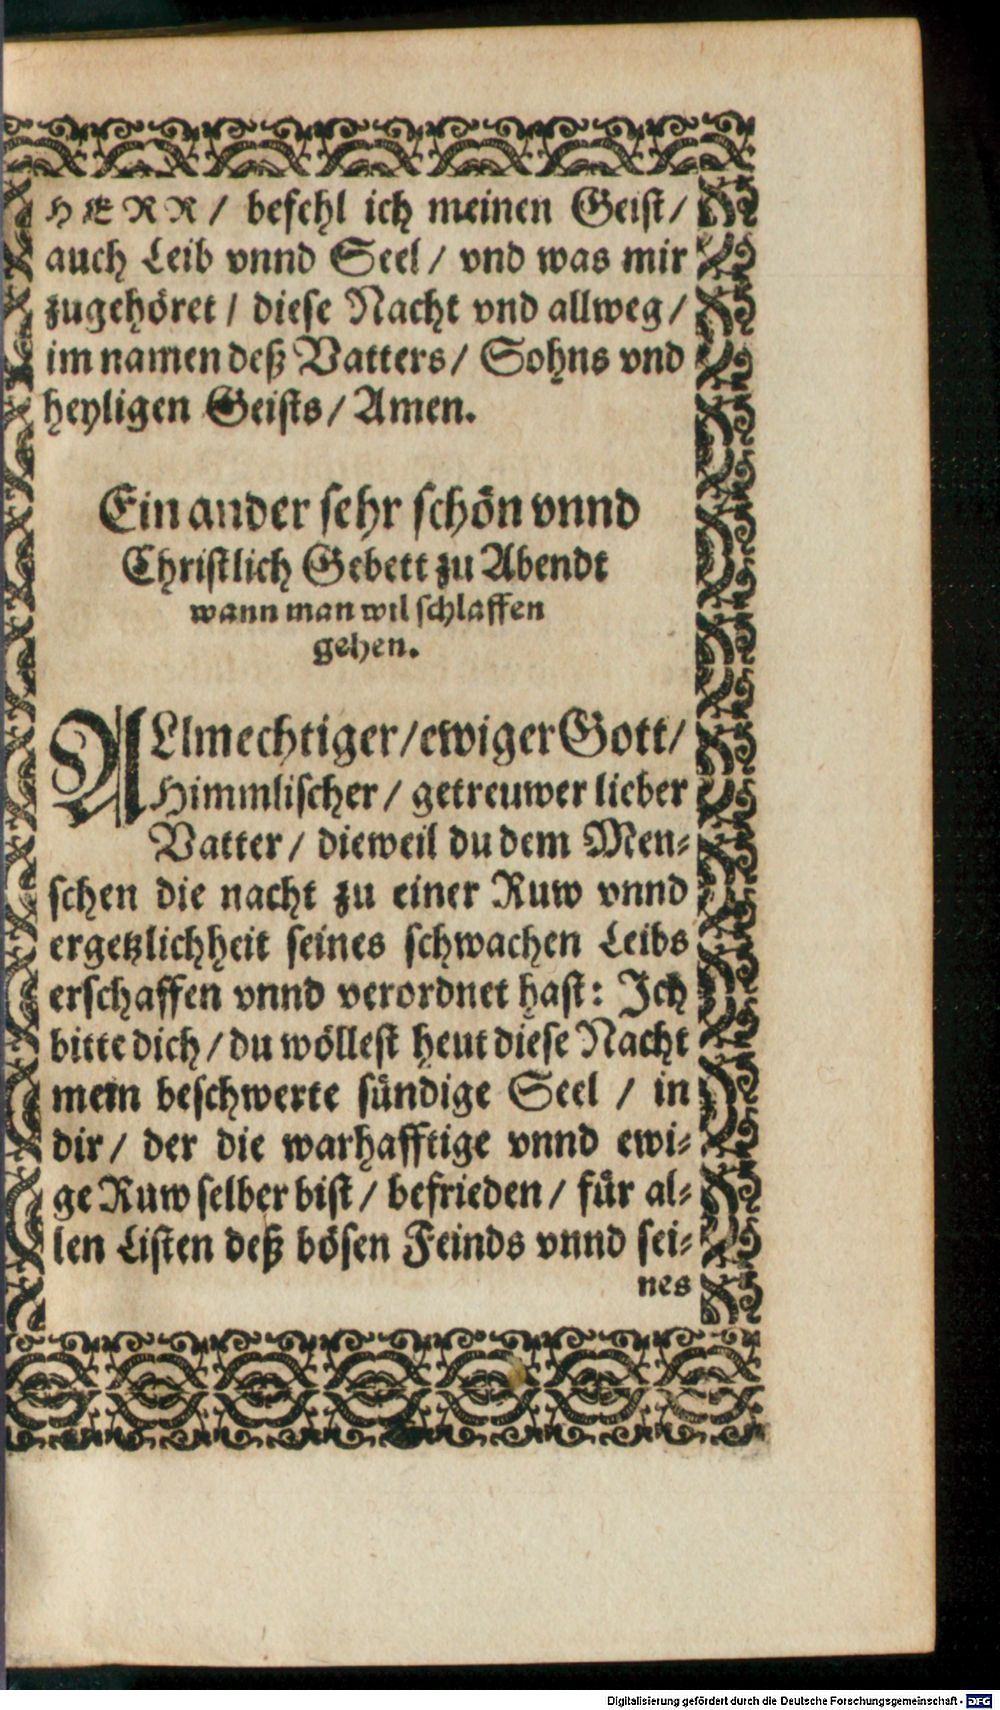 HERR / befehl ich meinen Geist /
auch Leib vnnd Seel / vnd was mir
zugehöret / diese Nacht vnd allweg /
im namen deß Vatters / Sohns vnd
heyligen Geists / Amen.
Ein ander sehr schön vnnd
Christlich Gebett zu Abendt
wann man wil schlaffen
gehen.
ALlmechtiger / ewiger Gott /
Himmlischer / getreuwer lieber
Vatter / dieweil du dem Men-
schen die nacht zu einer Ruw vnnd
ergetzlichheit seines schwachen Leibs
erschaffen vnnd verordnet hast: Ich
bitte dich / du wöllest heut diese Nacht
mein beschwerte sündige Seel / in
dir / der die warhafftige vnnd ewi-
ge Ruw selber bist / befrieden / für al-
len Listen deß bösen Feinds vnnd sei-
nes
Digitalisierung gefördert durch die Deutsche Forschungsgemeinschaft - DFG